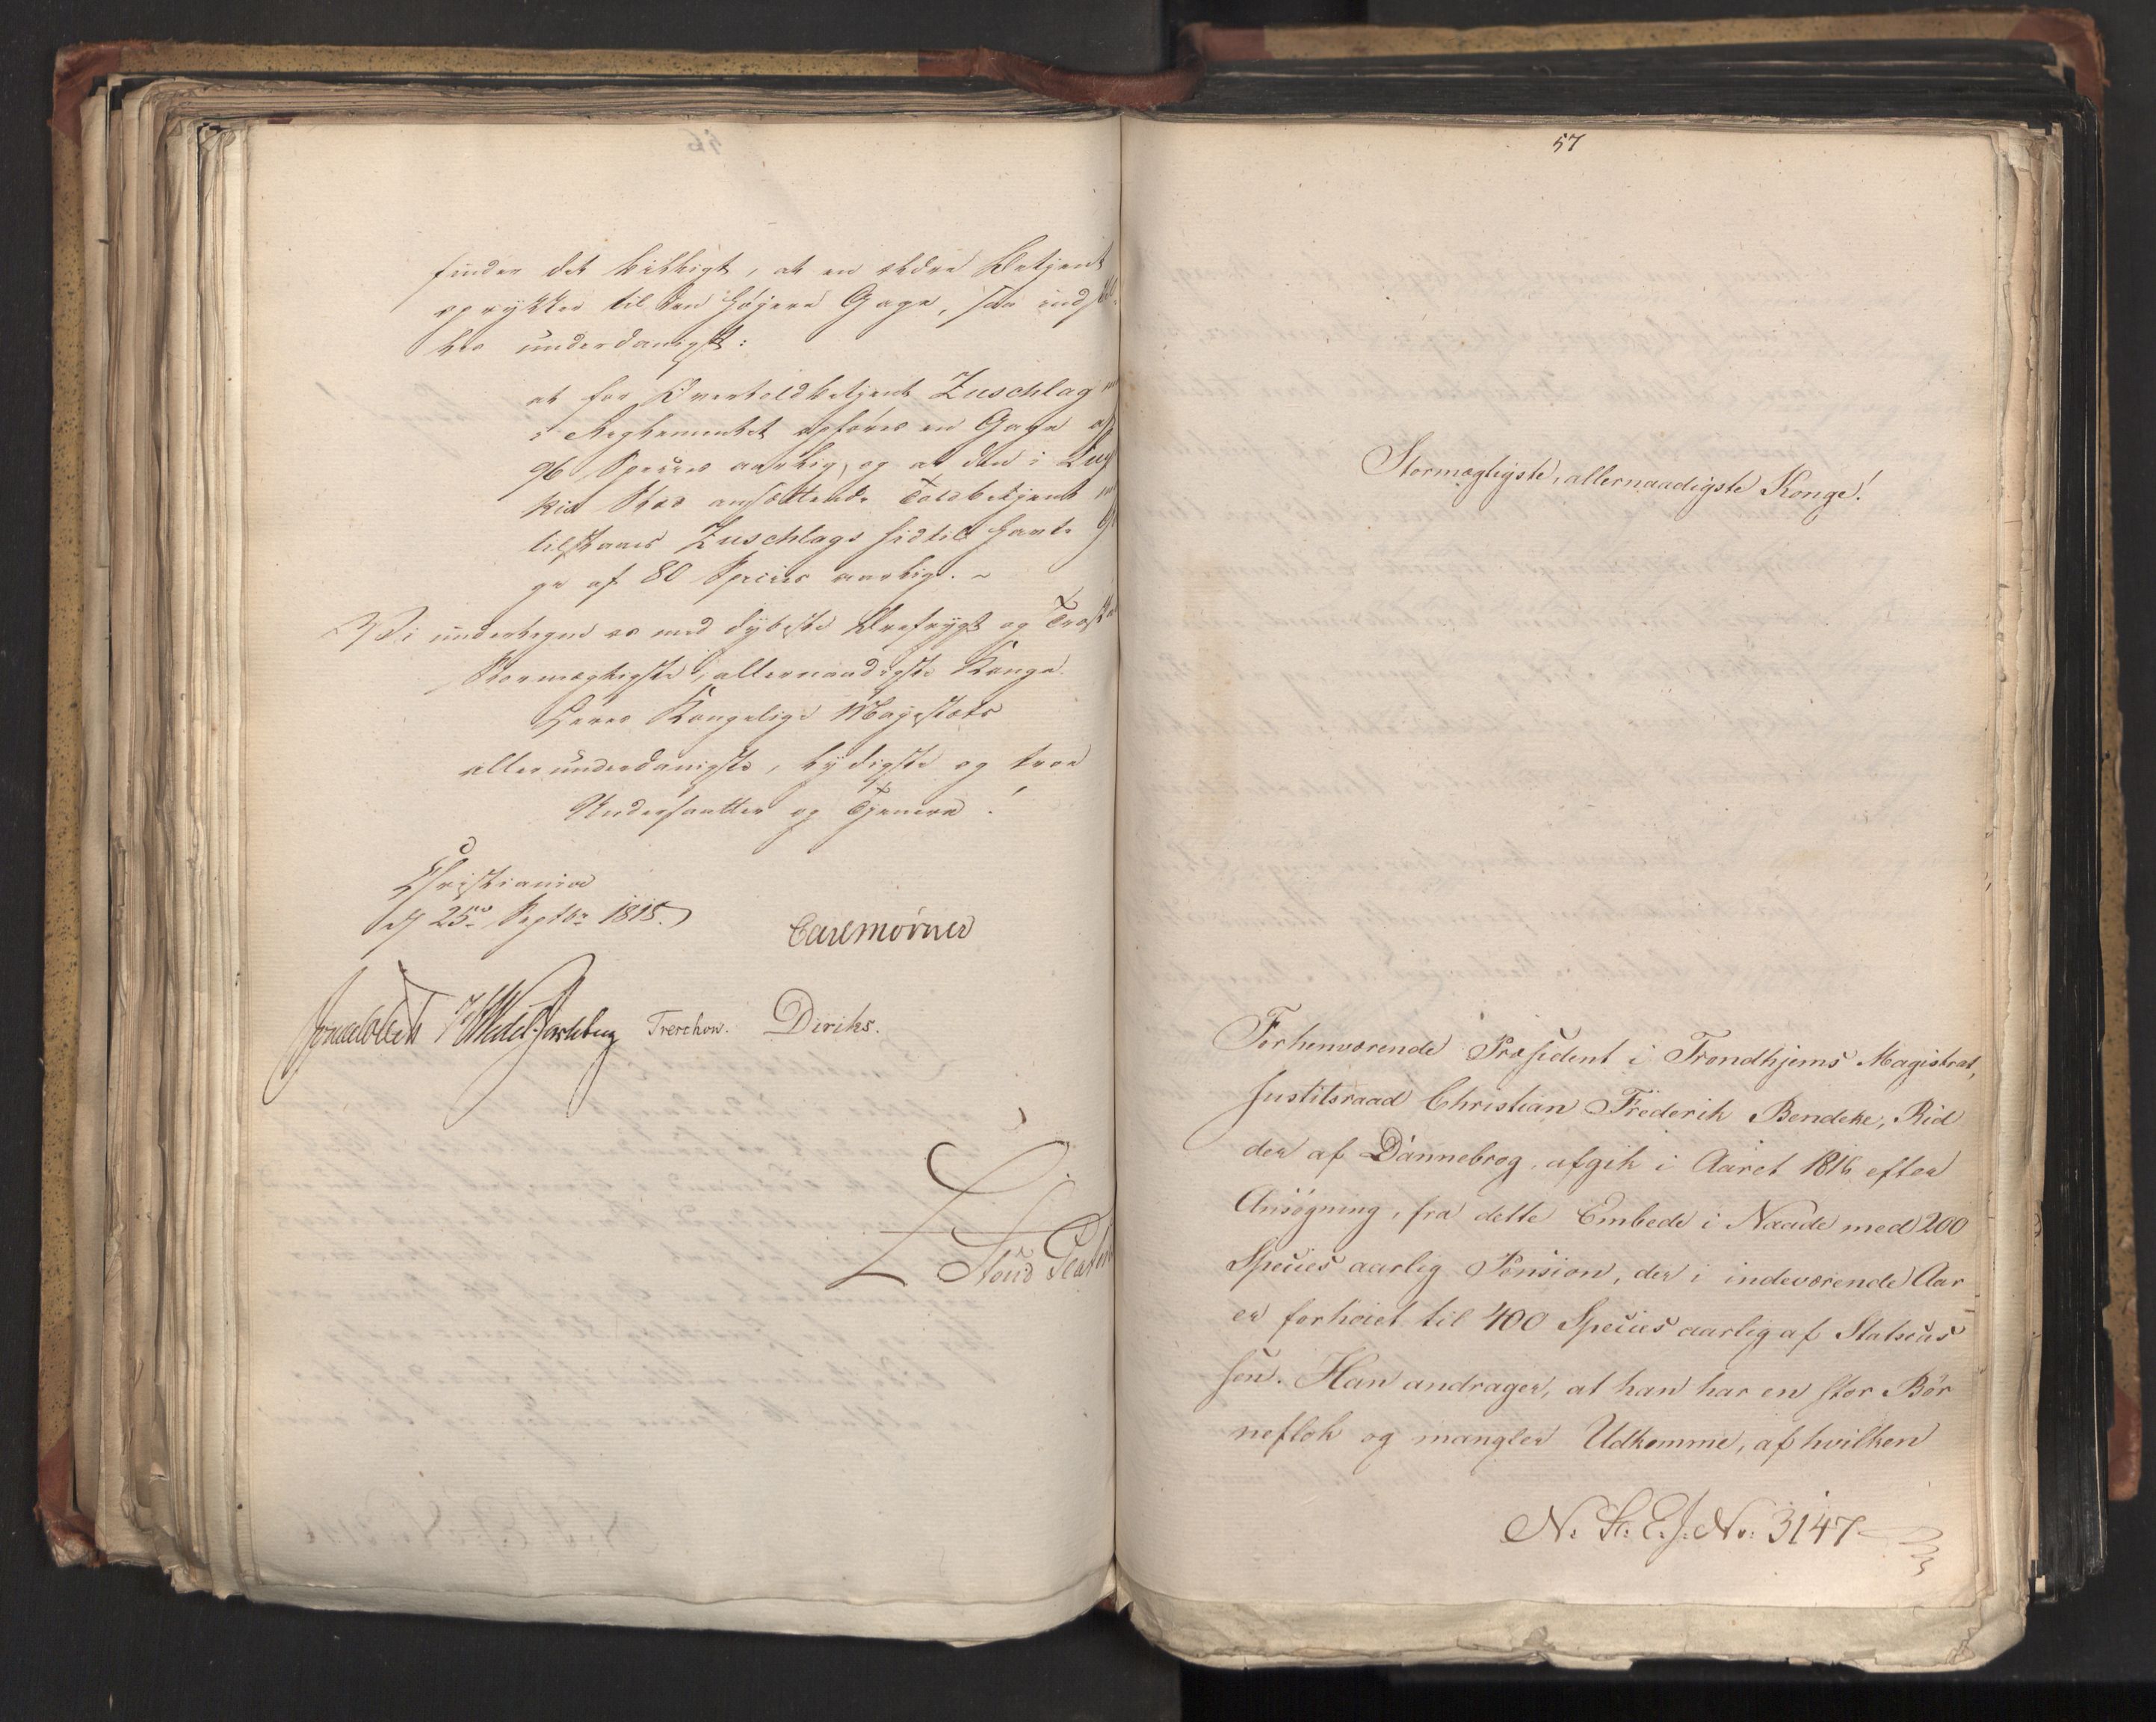 finder det billigt, at en ældre Betjent
oprykker til den højere Gage, saa indstil-
les underdanigst:
at for Overtoldbetjent Zuschlag
i Reglementet opføres en Gage af
96 Species aarlig, og at den i
Sted ansættende Toldbetjent
tillstaaes Zuschlags hidtil havte Ga-
ge af 80 Species aarligt. ~
Vi undertegne os med dybeste Ærefrygt og
Stormægtigste, allernaadigste Konge
Deres Kongelige Majestæts
allerunderdanigste, lydigste og troe
Undersaatter og Tjenere!
Christiania
d. 25de Septbr 1818.
Carl Mörner
Jonas Collett HWedel-Jarlsberg Treschow. Diriks.
57
Stormægtigste, allernaadigste Konge!
Forhenværende Præsident i Trondhjems Magistrat,
Justitsraad Christian Frederik Bendeke, Rid
der af Dannebrog, afgik i Aaret 1816 efter
Ansøgning, fra dette Embede i Naade med 200
Species aarlig Pension, der i indeværende Aar
er forhøiet til 400 Species aarlig af Statscas-
sen. Han andrager, at han har en stor Bør
neflok og mangler Udkomme, af hvilken
N. St. E. J. No: 3147